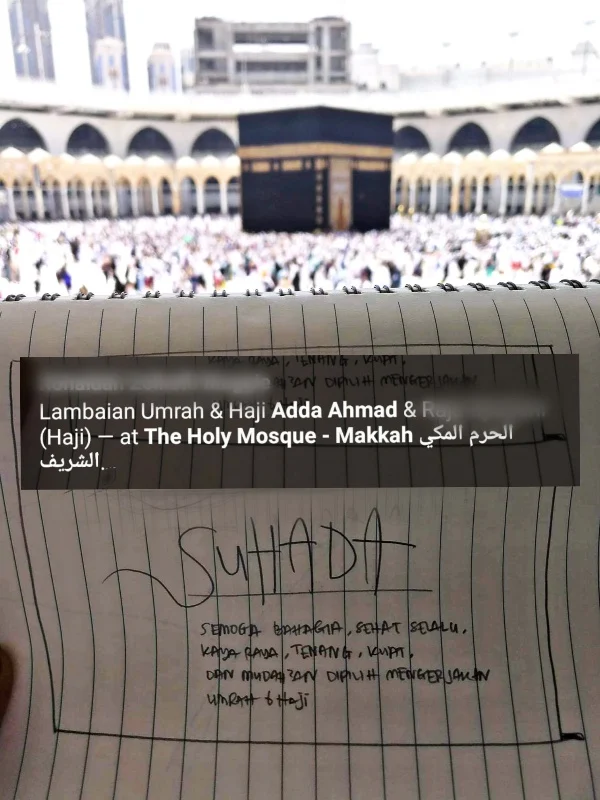 KAYA RAYA, TENANG, KUAT,
DIPILIH MENGERJAKAN
Lambaian Umrah & Haji Adda Ahmad &
(Haji) — at The Holy Mosque - Makkah الحرم المكي
الشريف...
SUHADA
SEMOGA BAHAGIA, SEHAT SELALU,
KAYA RAYA, TENANG, KUAT,
DAN MUDAH2AN DIPILIH MENGERJAKAN
UMRAH & HAJI